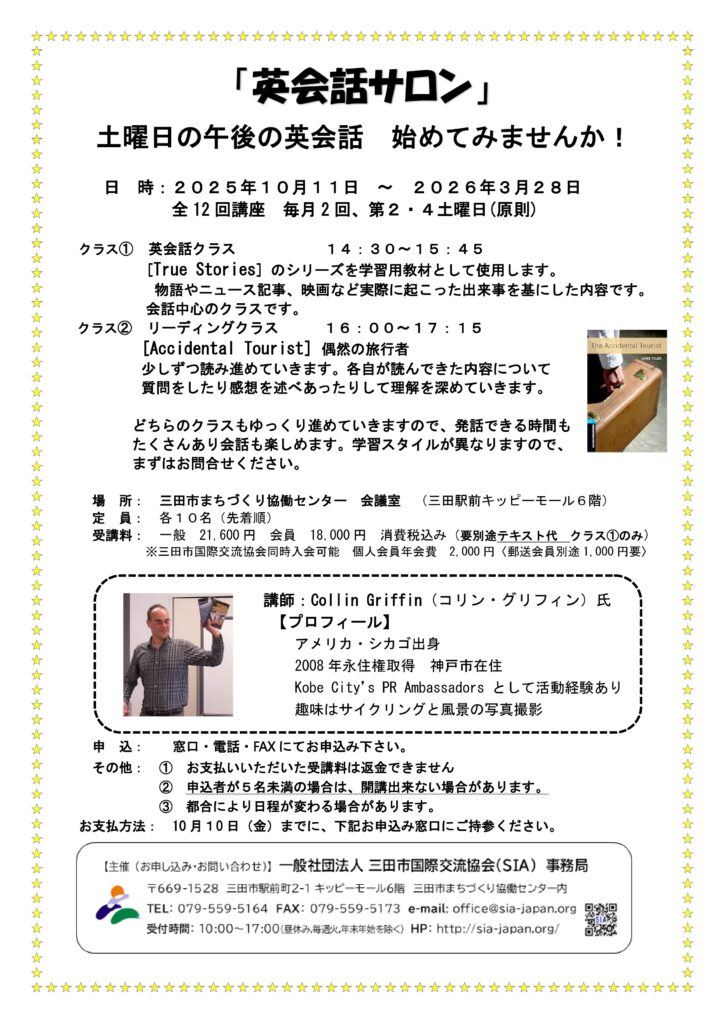 「英会話サロン」
土曜日の午後の英会話　始めてみませんか！
日　時：２０２５年１０月１１日　～　２０２６年３月２８日
全12回講座　毎月2回、第２・４土曜日(原則)
クラス①　英会話クラス　１４：３０～１５：４５
[True Stories] のシリーズを学習用教材として使用します。
物語やニュース記事、映画など実際に起こった出来事を基にした内容です。
会話中心のクラスです。
クラス②　リーディングクラス　１６：００～１７：１５
[Accidental Tourist] 偶然の旅行者
少しずつ読み進めていきます。各自が読んできた内容について
質問をしたり感想を述べあったりして理解を深めていきます。
The Accidental Tourist
ANNE TYLER
どちらのクラスもゆっくり進めていきますので、発話できる時間も
たくさんあり会話も楽しめます。学習スタイルが異なりますので、
まずはお問合せください。
場　所：　三田市まちづくり協働センター　会議室　（三田駅前キッピーモール６階）
定　員：　各１０名（先着順）
受講料：　一般　21,600円　会員　18,000円　消費税込み（要別途テキスト代　クラス①のみ）
※三田市国際交流協会同時入会可能　個人会員年会費　2,000円〈郵送会員別途1,000円要〉
講師：Collin Griffin（コリン・グリフィン）氏
【プロフィール】
アメリカ・シカゴ出身
2008年永住権取得　神戸市在住
Kobe City's PR Ambassadors として活動経験あり
趣味はサイクリングと風景の写真撮影
申　込：　窓口・電話・FAXにてお申込み下さい。
その他：　①　お支払いいただいた受講料は返金できません
②　申込者が５名未満の場合は、開講出来ない場合があります。
③　都合により日程が変わる場合があります。
お支払方法：　10月10日（金）までに、下記お申込み窓口にご持参ください。
【主催（お申し込み・お問い合わせ）】一般社団法人 三田市国際交流協会（SIA）事務局
〒669-1528　三田市駅前町2-1 キッピーモール6階　三田市まちづくり協働センター内
TEL: 079-559-5164　FAX: 079-559-5173　e-mail: office@sia-japan.org
受付時間: 10:00～17:00（昼休み,毎週火,年末年始を除く）　HP: http://sia-japan.org/
SIA